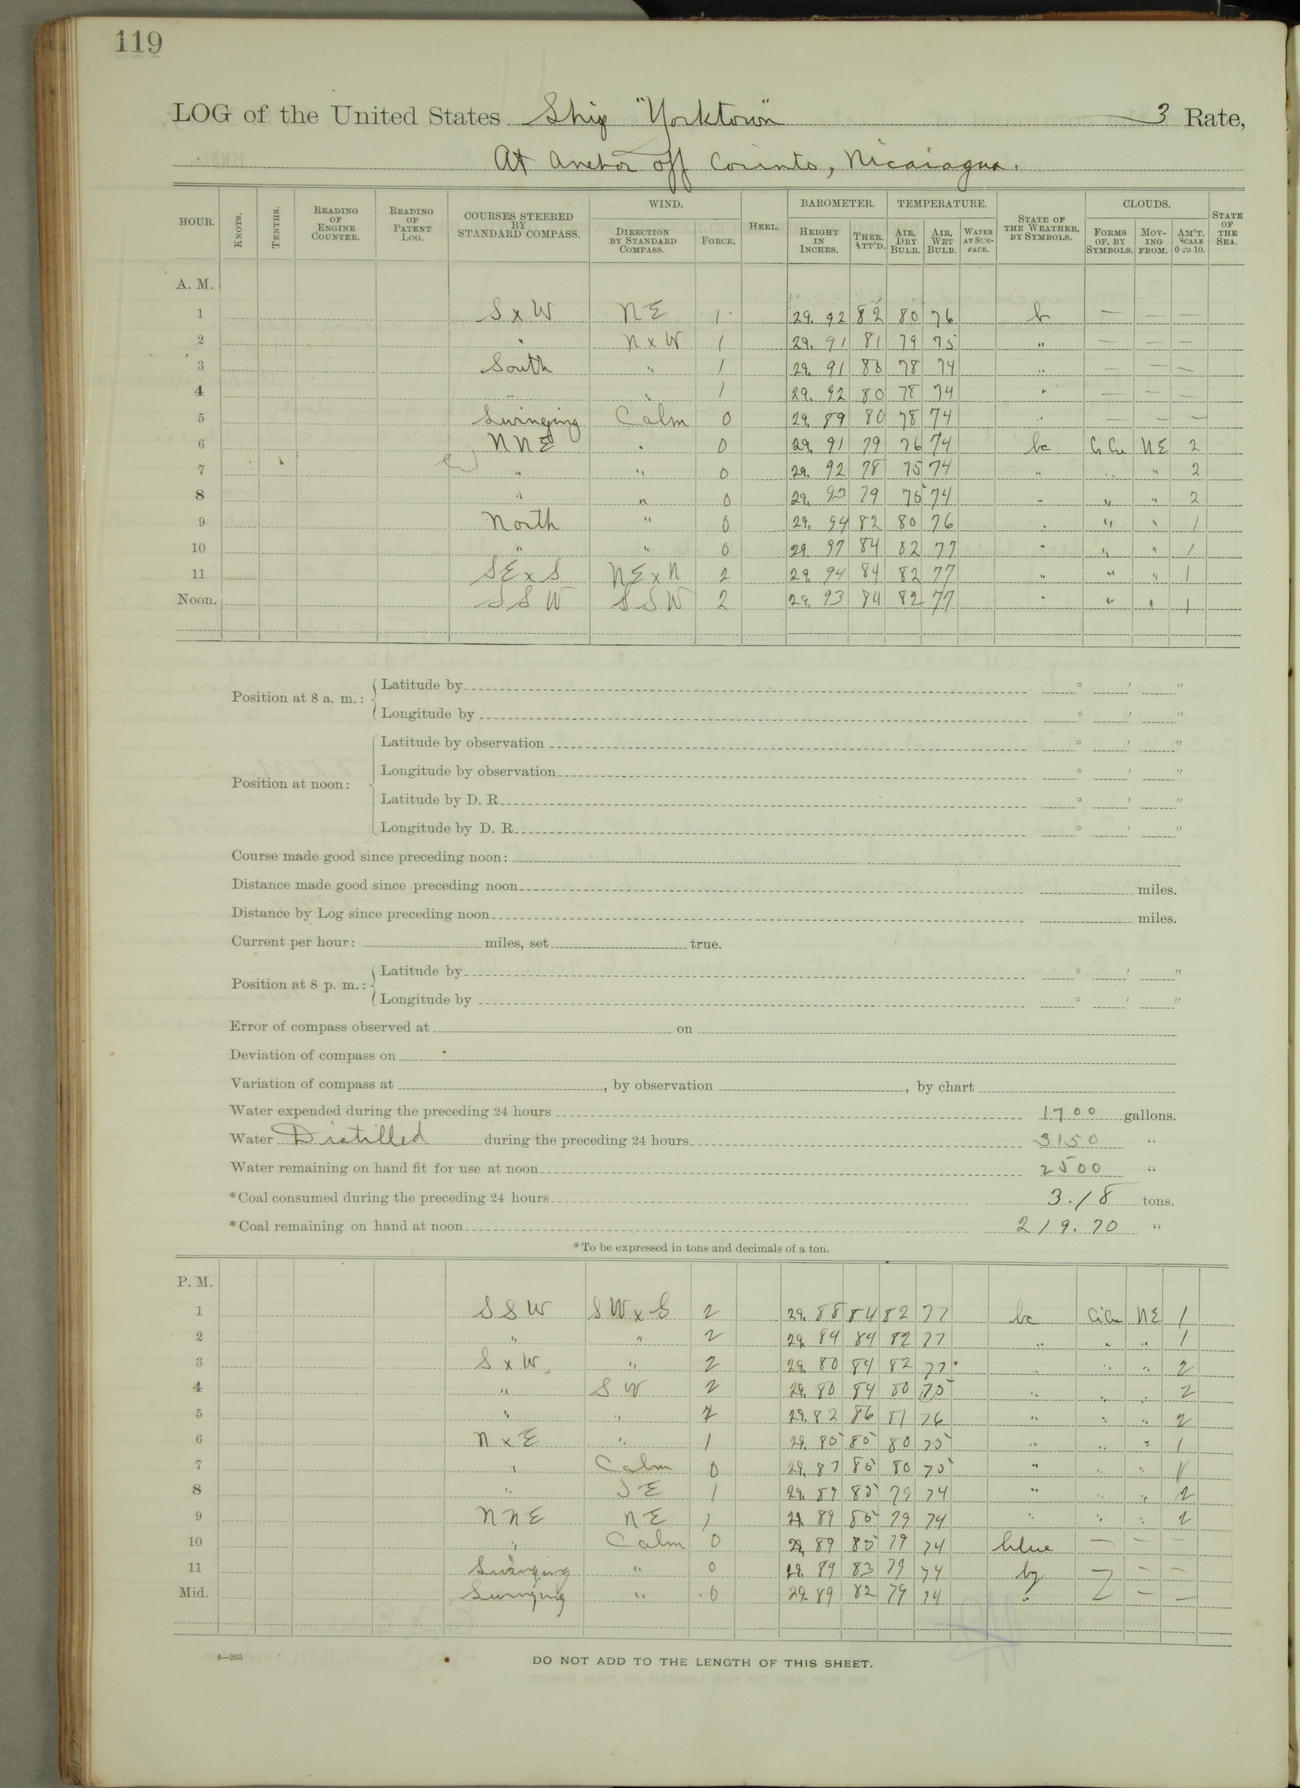 119
LOG of the United States Ship "Yorktown" 3 Rate,
At anchor off Corinto, Nicaragua.
HOUR. KNOTS. TENTHS. READING OF ENGINE COUNTER. READING OF PATENT LOG. COURSES STEERED BY STANDARD COMPASS. WIND. DIRECTION BY STANDARD COMPASS. FORCE. HEEL. BAROMETER. HEIGHT IN INCHES. THER. ATT'D. TEMPERATURE. AIR, DRY BULB. AIR, WET BULB. WATER AT SUR-FACE. STATE OF THE WEATHER, BY SYMBOLS. CLOUDS. FORMS OF, BY SYMBOLS. MOV-ING FROM. AM'T. SCALE 0 TO 10. STATE OF THE SEA.
A. M.
1 S x W NE 1 29.92 82 80 76 b — — —
2 " N x W 1 29.91 81 79 75 " — — —
3 South " 1 29.91 80 78 74 " — — —
4 " " 1 29.92 80 78 74 " — — —
5 Swinging Calm 0 29.89 80 78 74 " — — —
6 NNE " 0 29.91 79 76 74 bc Ci Cu NE 2
7 " " 0 29.92 78 75 74 " " " 2
8 " " 0 29.93 79 76 74 " " " 2
9 North " 0 29.94 82 80 76 " " " 1
10 " " 0 29.97 84 82 77 " " " 1
11 SE x S NE x N 2 29.94 84 82 77 " " " 1
Noon. SSW SSW 2 29.93 84 82 77 " " " 1
Position at 8 a. m.: Latitude by ° ′ ″
Longitude by ° ′ ″
Position at noon: Latitude by observation ° ′ ″
Longitude by observation ° ′ ″
Latitude by D. R. ° ′ ″
Longitude by D. R. ° ′ ″
Course made good since preceding noon:
Distance made good since preceding noon miles.
Distance by Log since preceding noon miles.
Current per hour: miles, set true.
Position at 8 p. m.: Latitude by ° ′ ″
Longitude by ° ′ ″
Error of compass observed at on
Deviation of compass on
Variation of compass at , by observation , by chart
Water expended during the preceding 24 hours 1700 gallons.
Water Distilled during the preceding 24 hours 3150 "
Water remaining on hand fit for use at noon 2500 "
*Coal consumed during the preceding 24 hours 3.18 tons.
*Coal remaining on hand at noon 219.70 "
*To be expressed in tons and decimals of a ton.
P. M.
1 SSW SW x S 2 29.88 84 82 77 bc Ci Cu NE 1
2 " " 2 29.84 84 82 77 " " " 1
3 S x W " 2 29.80 84 82 77 " " " 2
4 " SW 2 29.80 84 80 75 " " " 2
5 " " 2 29.82 86 81 76 " " " 2
6 N x E " 1 29.85 85 80 75 " " " 1
7 " Calm 0 29.87 85 80 75 " " " 1
8 " SE 1 29.89 85 79 74 " " " 2
9 NNE NE 1 29.89 85 79 74 " " " 2
10 " Calm 0 29.89 85 79 74 blue — — —
11 Swinging " 0 29.89 83 79 74 — —
Mid. Swinging " 0 29.89 82 79 74 " — —
4—265
DO NOT ADD TO THE LENGTH OF THIS SHEET.